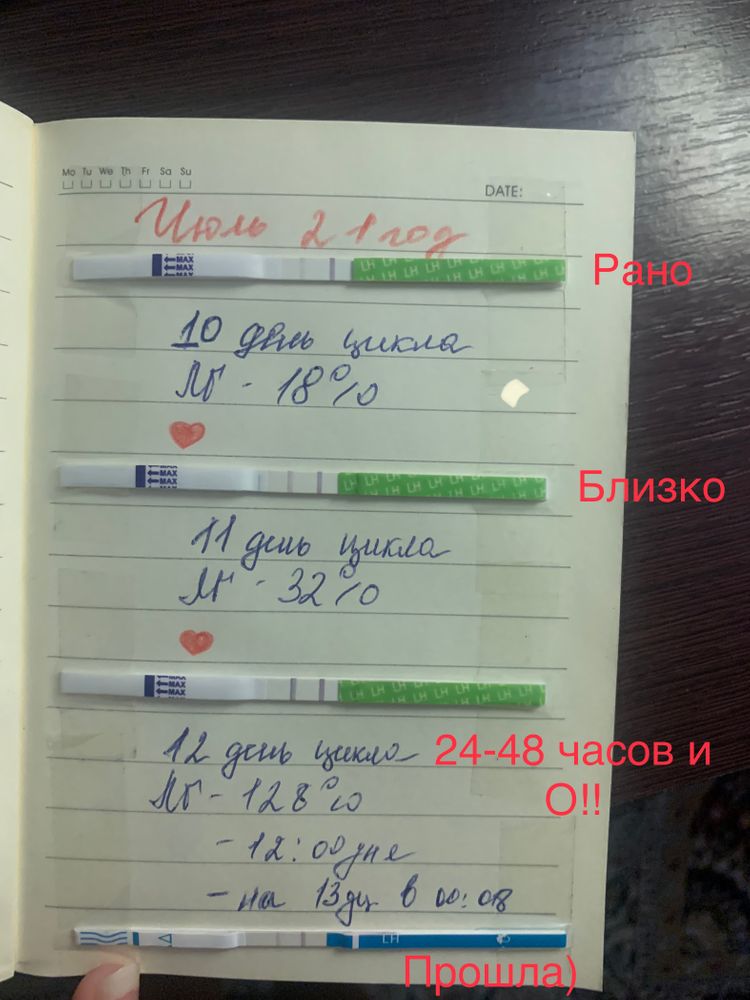 Mo Tu We Th Fr Sa Su
DATE:
Июль 21 год
MAX
MAX
MAX
LH LH LH LH LH LH LH
Рано
10 день цикла
ЛГ - 18%
MAX
MAX
MAX
LH LH LH LH LH LH LH
Близко
11 день цикла
ЛГ - 32%
MAX
MAX
MAX
LH LH LH LH LH LH LH
12 день цикла
24-48 часов и
О!!
ЛГ - 128%
- 12:00 дня
- на 13дц в 00:08
LH
Прошла)